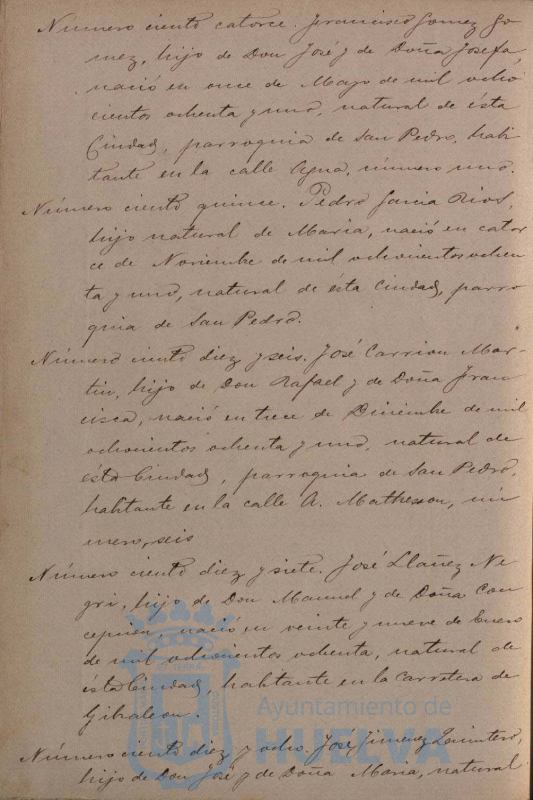 Número ciento catorce. Francisco Gomez Go
mez, hijo de Don José y de Doña Josefa,
nació en once de Mayo de mil ocho
cientos ochenta y uno, natural de ésta
Ciudad, parroquia de San Pedro, habi
tante en la calle Agua, número uno.
Número ciento quince. Pedro Garcia Rios,
hijo natural de Maria, nació en cator
ce de Noviembre de mil ochocientos ochen
ta y uno, natural de ésta Ciudad, parro
quia de San Pedro.
Número ciento diez y seis. José Carrion Mar-
tin, hijo de Don Rafael y de Doña Fran
cisca, nació en trece de Diciembre de mil
ochocientos ochenta y uno, natural de
ésta Ciudad, parroquia de San Pedro,
habitante en la calle A. Matheson, nú
mero, seis
Número ciento diez y siete. José Llañez Ne
gri, hijo de Don Manuel y de Doña Con
cepcion, nació en veinte y nueve de Enero
de mil ochocientos ochenta, natural de
ésta Ciudad, habitante en la Carretera de
Gibraleon.
Ayuntamiento de
HUELVA
Número ciento diez y ocho. José Jimenez Quintero,
hijo de Don José y de Doña Maria, natural